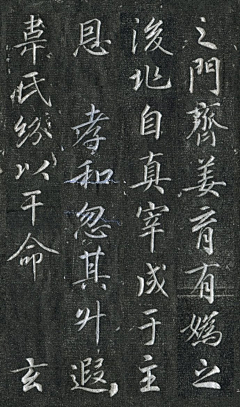 之門齊姜育有媯之
後兆自真宰成于主
恩 孝和忽其升遐
韋氏紛以干命 玄